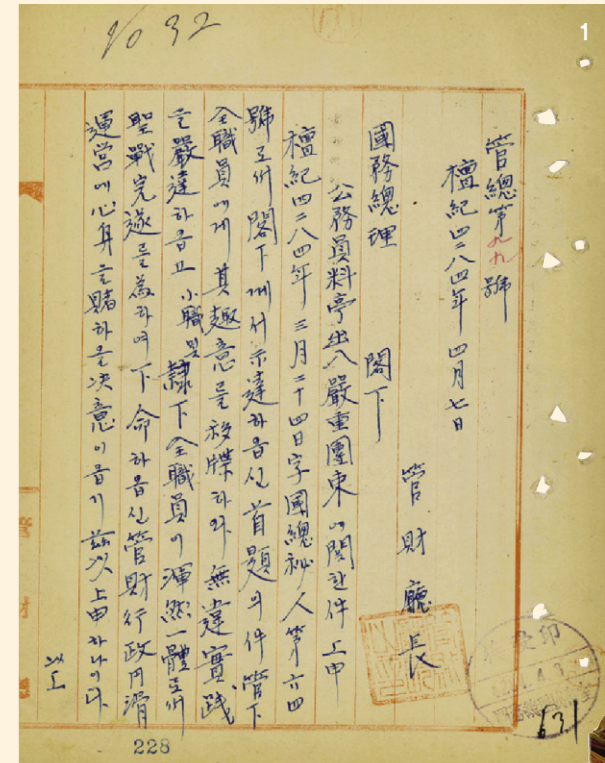 9032
1
管總第九九號
檀紀四二八四年 四月七日
管財廳長
國務總理 閣下
公務員料亭出入嚴重團束에関한件上申
檀紀四二八四年三月二十四日字國總秘人第六四
號로서 閣下께서示達하옵신首題의件管下
全職員에게 其趣意를移牒하와 無違實践
을嚴達하옵고 小職및隷下全職員이渾然一體로서
聖戰完遂를為하여下命하옵신管財行政円滑
運営에心身을賭하올决意이옵기玆以上申하나이다
以上
受印
631
228